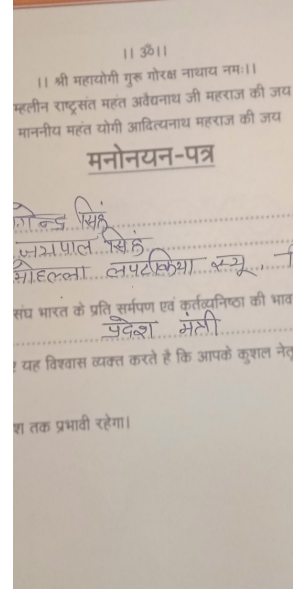 ।। ॐ ।।
।। श्री महायोगी गुरू गोरक्ष नाथाय नमः।।
म्हलीन राष्ट्रसंत महंत अवैद्यनाथ जी महराज की जय
माननीय महंत योगी आदित्यनाथ महराज की जय
मनोनयन-पत्र
सिंह
जयपाल सिंह
मोहल्ला लपटकिया
संघ भारत के प्रति सर्मपण एवं कर्तव्यनिष्ठा की भाव
प्रदेश मंत्री
यह विश्वास व्यक्त करते है कि आपके कुशल नेतृ
श तक प्रभावी रहेगा।